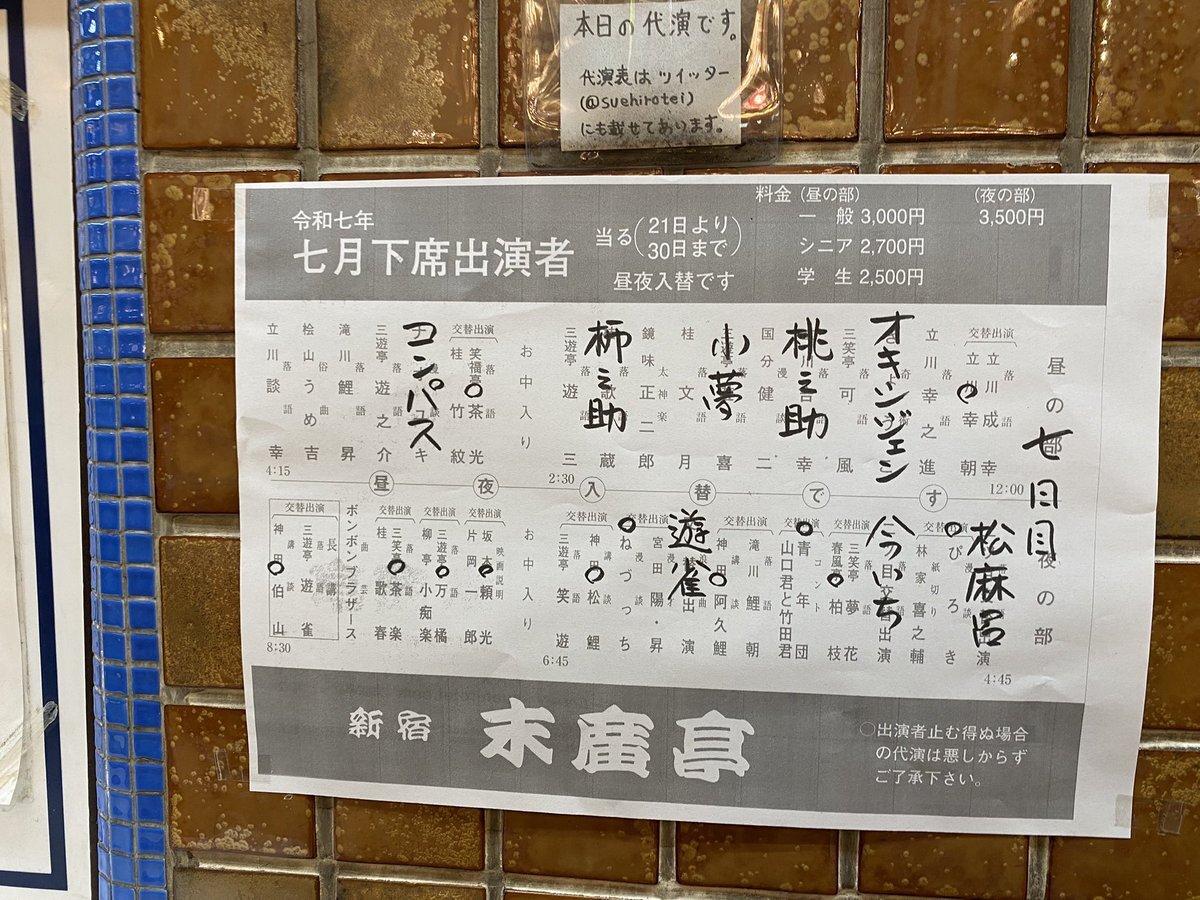 本日の代演です。
代演表はツイッター
(@suehirotei)
にも載せてあります。
令和七年
七月下席出演者
当る(21日より
30日まで)
昼夜入替です
料金(昼の部)
一般 3,000円
シニア 2,700円
学生 2,500円
(夜の部)
3,500円
昼の部
七日目
12:00
交替出演
立川落語成幸
立川幸朝
立川幸之進
オキシジェン
三笑亭可風
桃之助
国分健二
小夢
桂文月
鏡味正二郎
太神楽
柳之助
三遊亭遊三
2:30
お中入り
交替出演
笑福亭茶光
桂竹紋
コンパス
三遊亭遊之介
滝川鯉昇
桧山うめ吉
俗曲
立川談幸
落語
4:15
昼夜入替です
夜の部
4:45
松麻呂
交替出演
ぴろき
林家喜之輔
紙切り
今いち
交替出演
三笑亭夢花
春風亭柏枝
交替出演
青年団
コント
山口君と竹田君
滝川鯉朝
交替出演
神田阿久鯉
遊雀
交替出演
宮田陽・昇
ねづっち
交替出演
神田松鯉
三遊亭笑遊
6:45
お中入り
交替出演
坂本頼光
映画説明
片岡一郎
交替出演
三遊亭万橘
柳亭小痴楽
交替出演
三笑亭茶楽
桂歌春
ボンボンブラザース
曲芸
交替出演
三遊亭遊雀
神田伯山
講談
8:30
新宿 末廣亭
○出演者止む得ぬ場合
の代演は悪しからず
ご了承下さい。